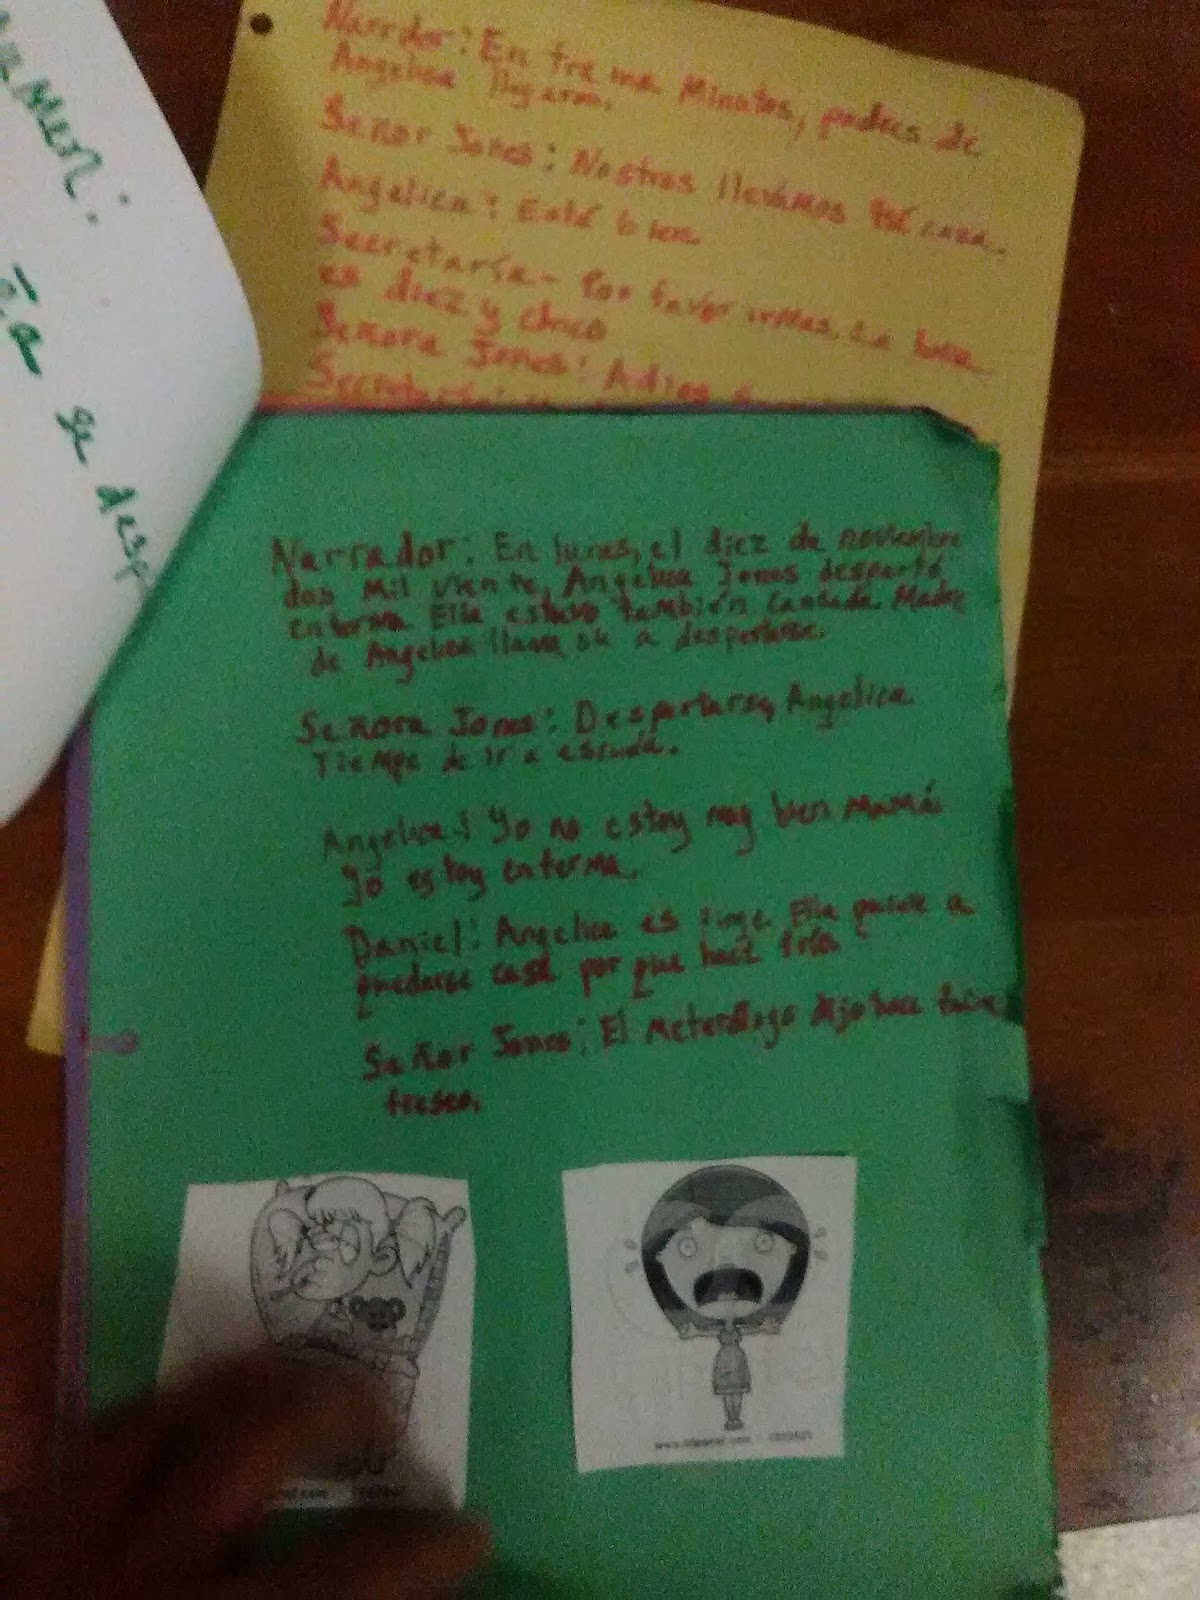 Narrdor: En tre ma Minutos, padres de
Angelica llegaron.
Señor Jones: Nostros llevámos casa.
Angelica: Está bien
Secretaría - Por favor La hora
es diez y cinco
Señora Jones: Adios
Narrador: En lunes, el diez de noviembre
dos mil viente, Angelica Jones despertó
enferma Ella estuvo también cansada. Madre
de Angelica llama a despertarse.
Señora Jones: Despertarse, Angelica
Tiempo de ir a escuela.
Angelica: Yo no estoy muy bien Mamá.
Yo estoy enferma.
Daniel: Angelica es finge. Ella a
quedarse casa por que hace fría
Señor Jones: El meterólogo dijo hace
fresco.
se desp